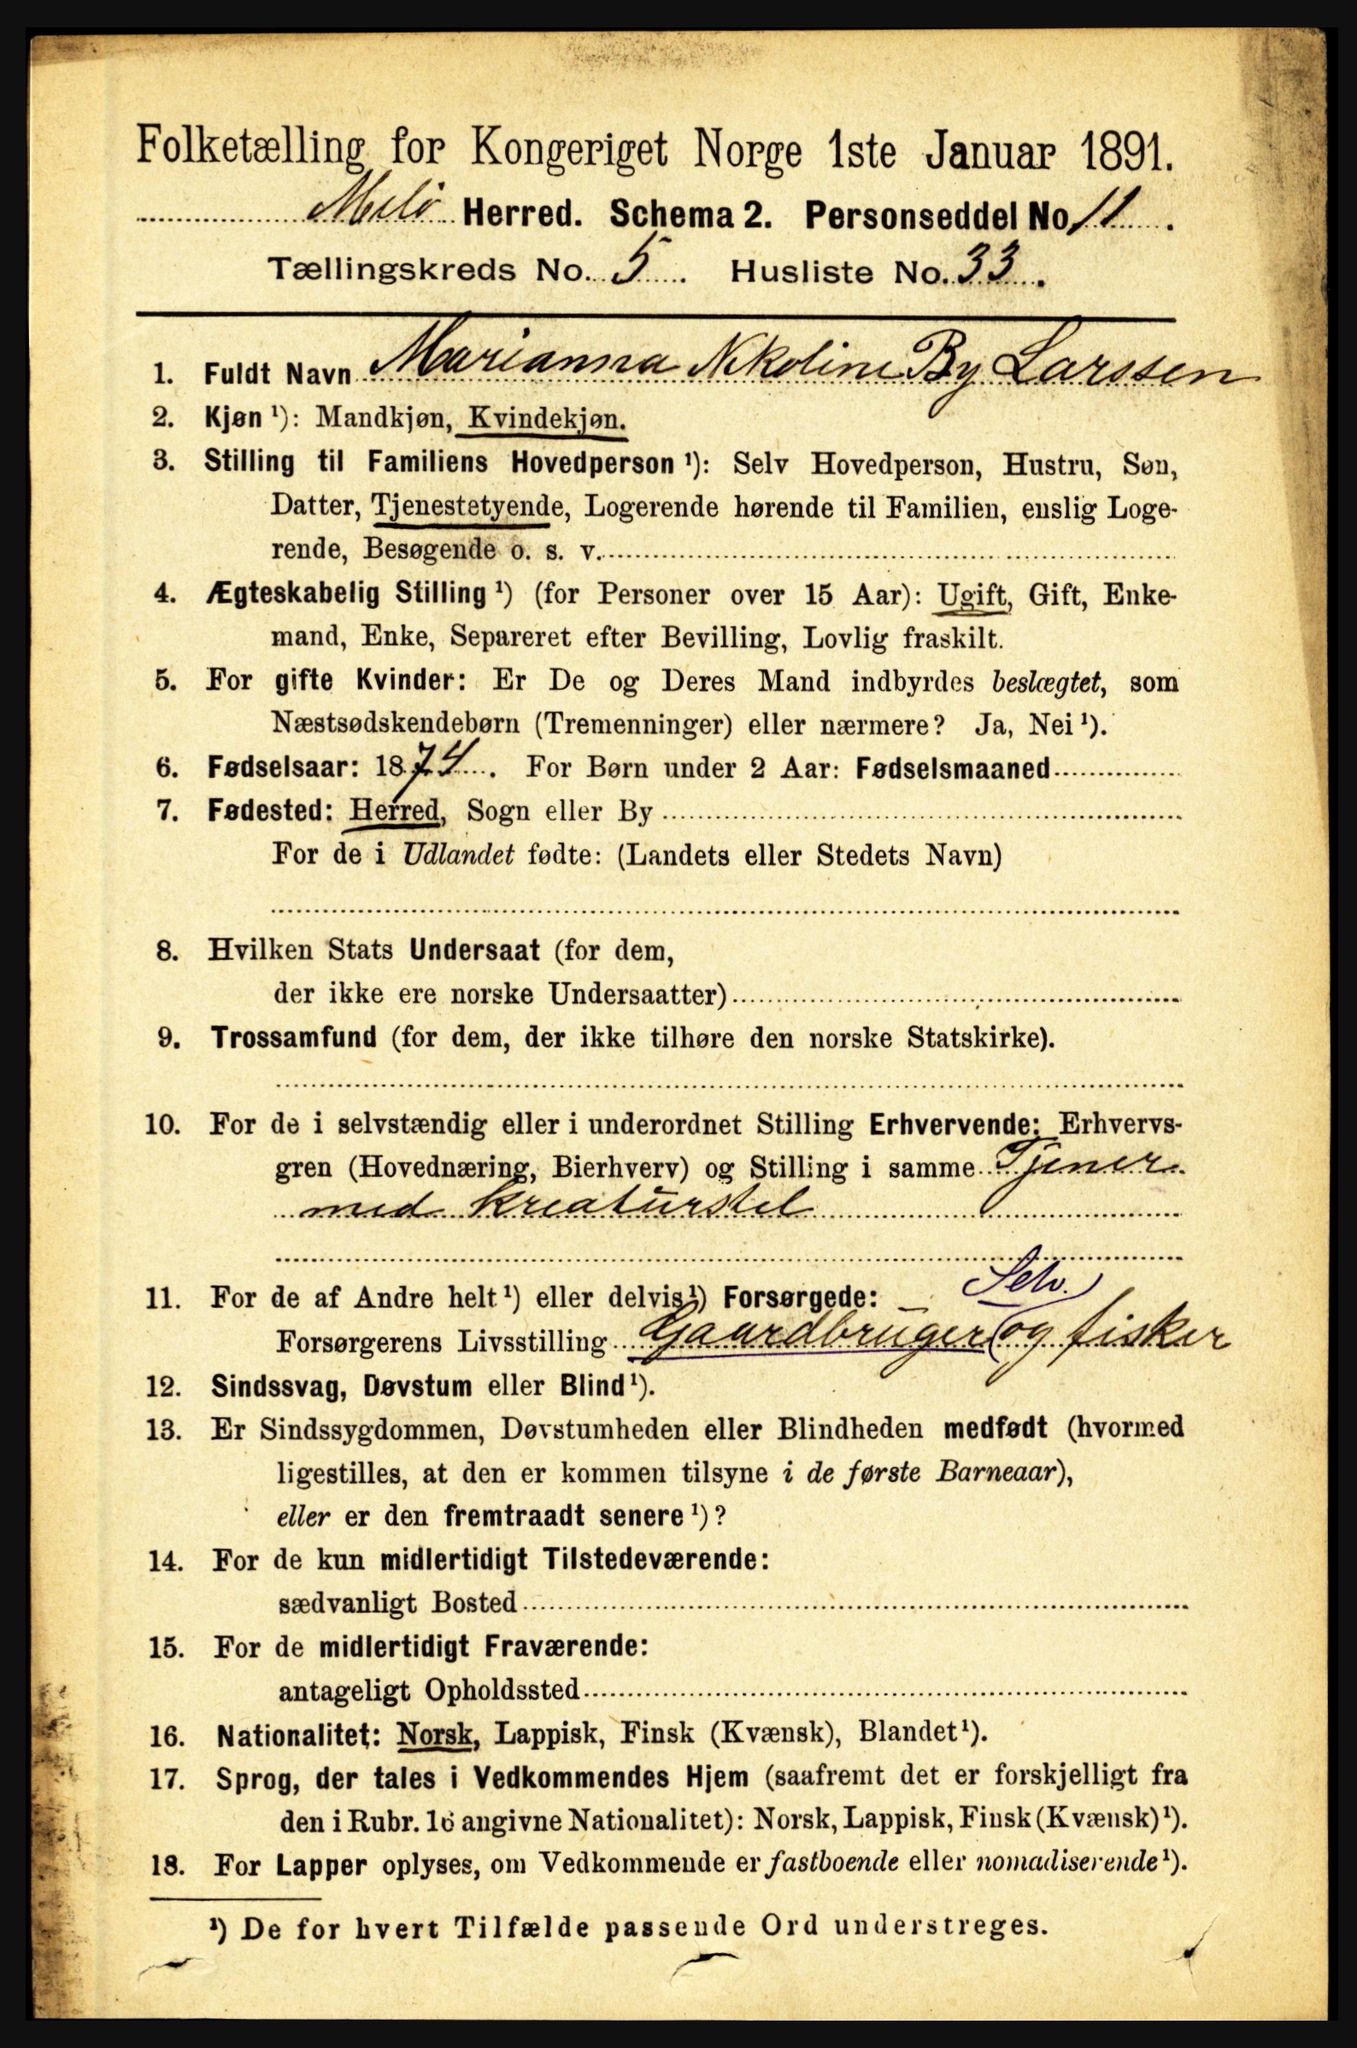 Folketælling for Kongeriget Norge 1ste Januar 1891.
Melö Herred. Schema 2. Personseddel No. 11.
Tællingskreds No. 5. Husliste No. 33.
1. Fuldt Navn Marianna Nkoline By Larssen
2. Kjøn ¹): Mandkjøn, Kvindekjøn.
3. Stilling til Familiens Hovedperson ¹): Selv Hovedperson, Hustru, Søn,
Datter, Tjenestetyende, Logerende hørende til Familien, enslig Loge-
rende, Besøgende o. s. v.
4. Ægteskabelig Stilling ¹) (for Personer over 15 Aar): Ugift, Gift, Enke-
mand, Enke, Separeret efter Bevilling, Lovlig fraskilt.
5. For gifte Kvinder: Er De og Deres Mand indbyrdes beslægtet, som
Næstsødskendebørn (Tremenninger) eller nærmere? Ja, Nei ¹).
6. Fødselsaar: 1874. For Børn under 2 Aar: Fødselsmaaned
7. Fødested: Herred, Sogn eller By
For de i Udlandet fødte: (Landets eller Stedets Navn)
8. Hvilken Stats Undersaat (for dem,
der ikke ere norske Undersaatter)
9. Trossamfund (for dem, der ikke tilhøre den norske Statskirke).
10. For de i selvstændig eller i underordnet Stilling Erhvervende: Erhvervs-
gren (Hovednæring, Bierhverv) og Stilling i samme Tjener
med kreaturstel
Selv.
11. For de af Andre helt ¹) eller delvis ¹) Forsørgede:
Forsørgerens Livsstilling Gaardbruger og fisker
12. Sindssvag, Døvstum eller Blind ¹).
13. Er Sindssygdommen, Døvstumheden eller Blindheden medfødt (hvormed
ligestilles, at den er kommen tilsyne i de første Barneaar),
eller er den fremtraadt senere ¹)?
14. For de kun midlertidigt Tilstedeværende:
sædvanligt Bosted
15. For de midlertidigt Fraværende:
antageligt Opholdssted
16. Nationalitet: Norsk, Lappisk, Finsk (Kvænsk), Blandet ¹).
17. Sprog, der tales i Vedkommendes Hjem (saafremt det er forskjelligt fra
den i Rubr. 16 angivne Nationalitet): Norsk, Lappisk, Finsk (Kvænsk) ¹).
18. For Lapper oplyses, om Vedkommende er fastboende eller nomadiserende ¹).
¹) De for hvert Tilfælde passende Ord understreges.